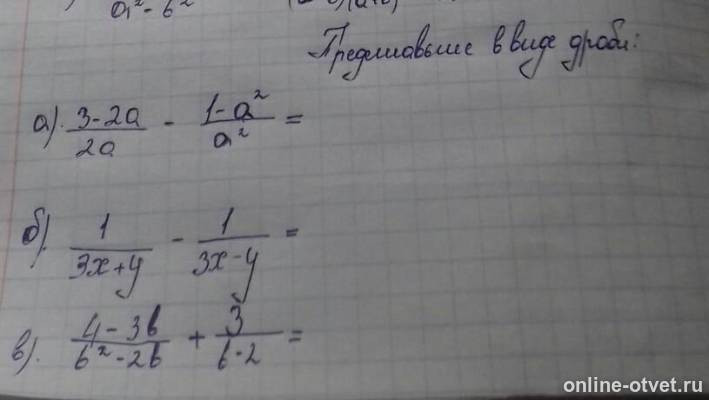 a² - b²
Представьте в виде дроби:
а). (3-2a)/(2a) - (1-a²)/(a²) =
б). 1/(3x+y) - 1/(3x-y) =
в). (4-3b)/(b²-2b) + 3/(b-2) =
online-otvet.ru